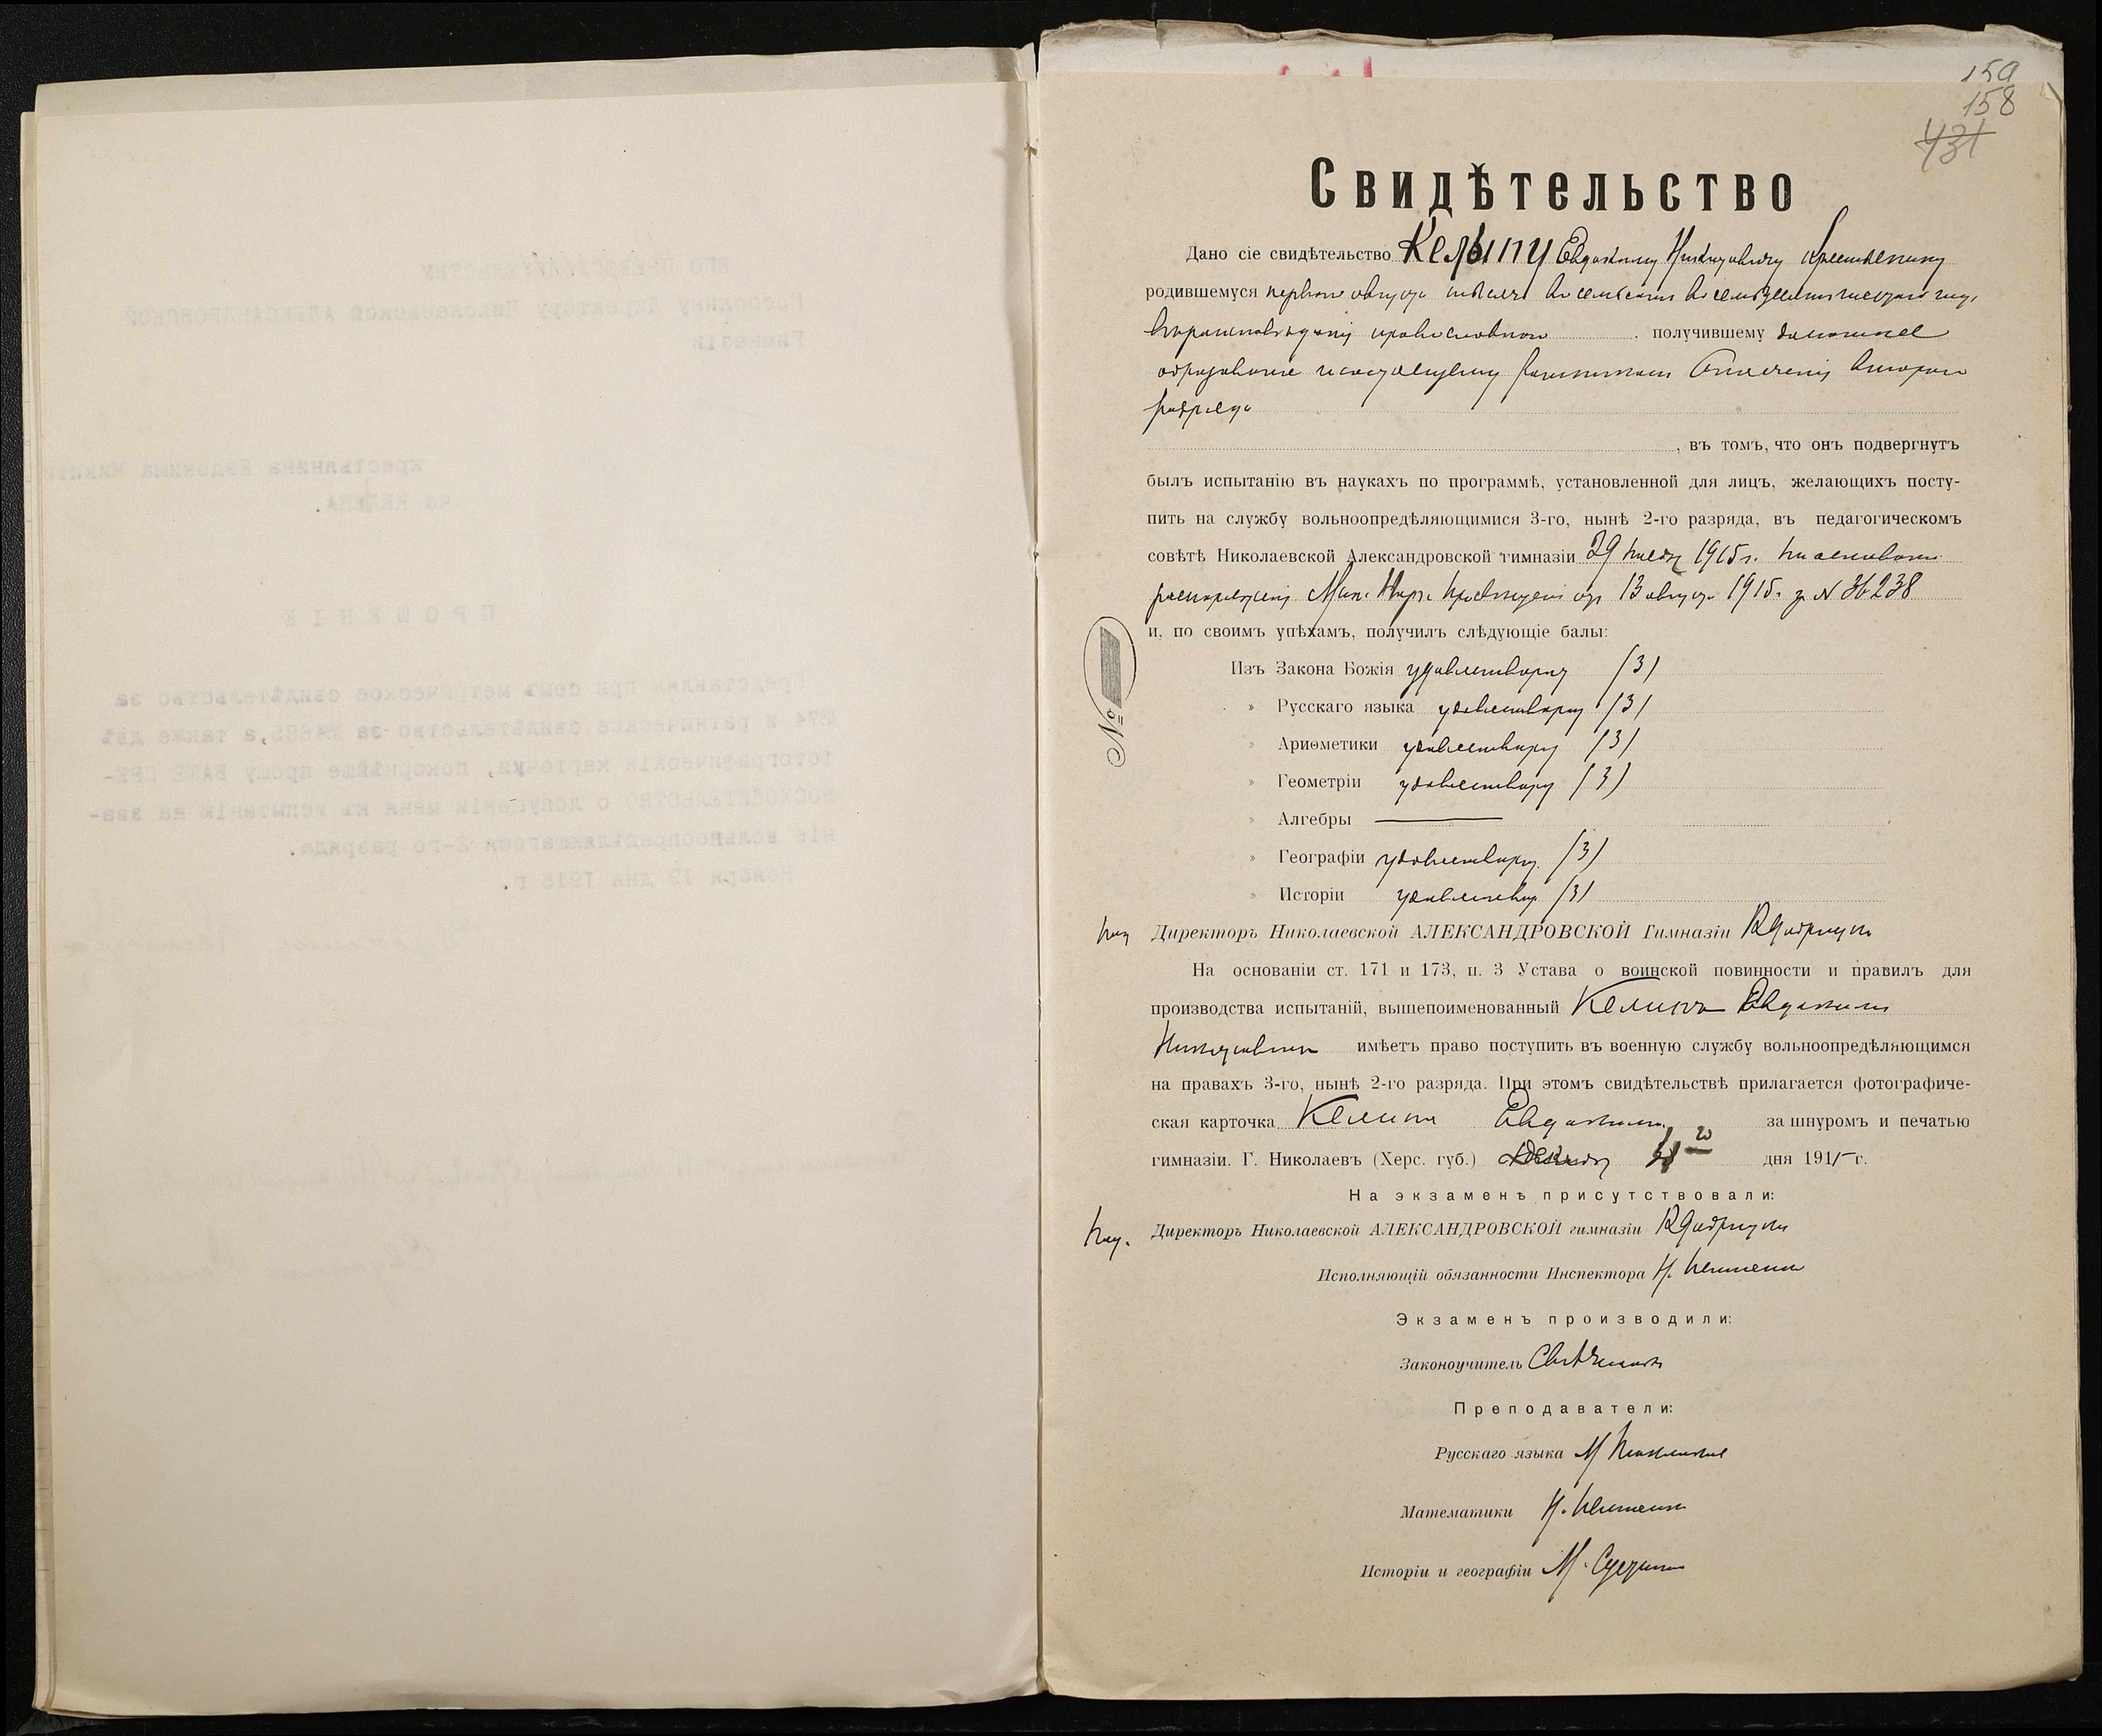 159
158
431
Свидѣтельство
Дано сіе свидѣтельство Келину Евдокиму Никитовичу крестьянину
родившемуся перваго августа тысяча восемьсотъ восемьдесятъ года,
вѣроисповѣданія православнаго получившему домашнее
образованіе и состоящему ратникомъ Ополченія второго
разряда
, въ томъ, что онъ подвергнутъ
былъ испытанію въ наукахъ по программѣ, установленной для лицъ, желающихъ посту-
пить на службу вольноопредѣляющимися 3-го, нынѣ 2-го разряда, въ педагогическомъ
совѣтѣ Николаевской Александровской гимназіи 29 1915 г. на основаніи
распоряженія Мин. Нар. Просвѣщенія отъ 13 августа 1915 г. за № 36238
и, по своимъ упѣхамъ, получилъ слѣдующіе балы:
№
Изъ Закона Божія удовлетворит (3)
» Русскаго языка удовлетворит (3)
» Ариѳметики удовлетворит (3)
» Геометріи удовлетворит (3)
» Алгебры ———
» Географіи удовлетворит. (3)
» Исторіи удовлетвор. (3)
Директоръ Николаевской АЛЕКСАНДРОВСКОЙ Гимназіи
На основаніи ст. 171 и 173, п. 3 Устава о воинской повинности и правилъ для
производства испытаній, вышепоименованный Келинъ Евдокимъ
Никитовичъ имѣетъ право поступить въ военную службу вольноопредѣляющимся
на правахъ 3-го, нынѣ 2-го разряда. При этомъ свидѣтельствѣ прилагается фотографиче-
ская карточка Келина Евдокима за шнуромъ и печатью
гимназіи. Г. Николаевъ (Херс. губ.) дня 1915 г.
На экзаменѣ присутствовали:
Директоръ Николаевской АЛЕКСАНДРОВСКОЙ гимназіи
Исполняющій обязанности Инспектора Н.
Экзаменъ производили:
Законоучитель
Преподаватели:
Русскаго языка М
Математики Н.
Исторіи и географіи М.